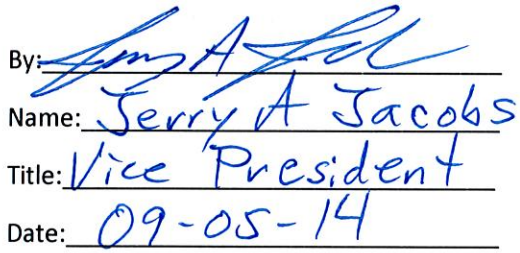 By:
Name: Jerry A Jacobs
Title: Vice President
Date: 09-05-14